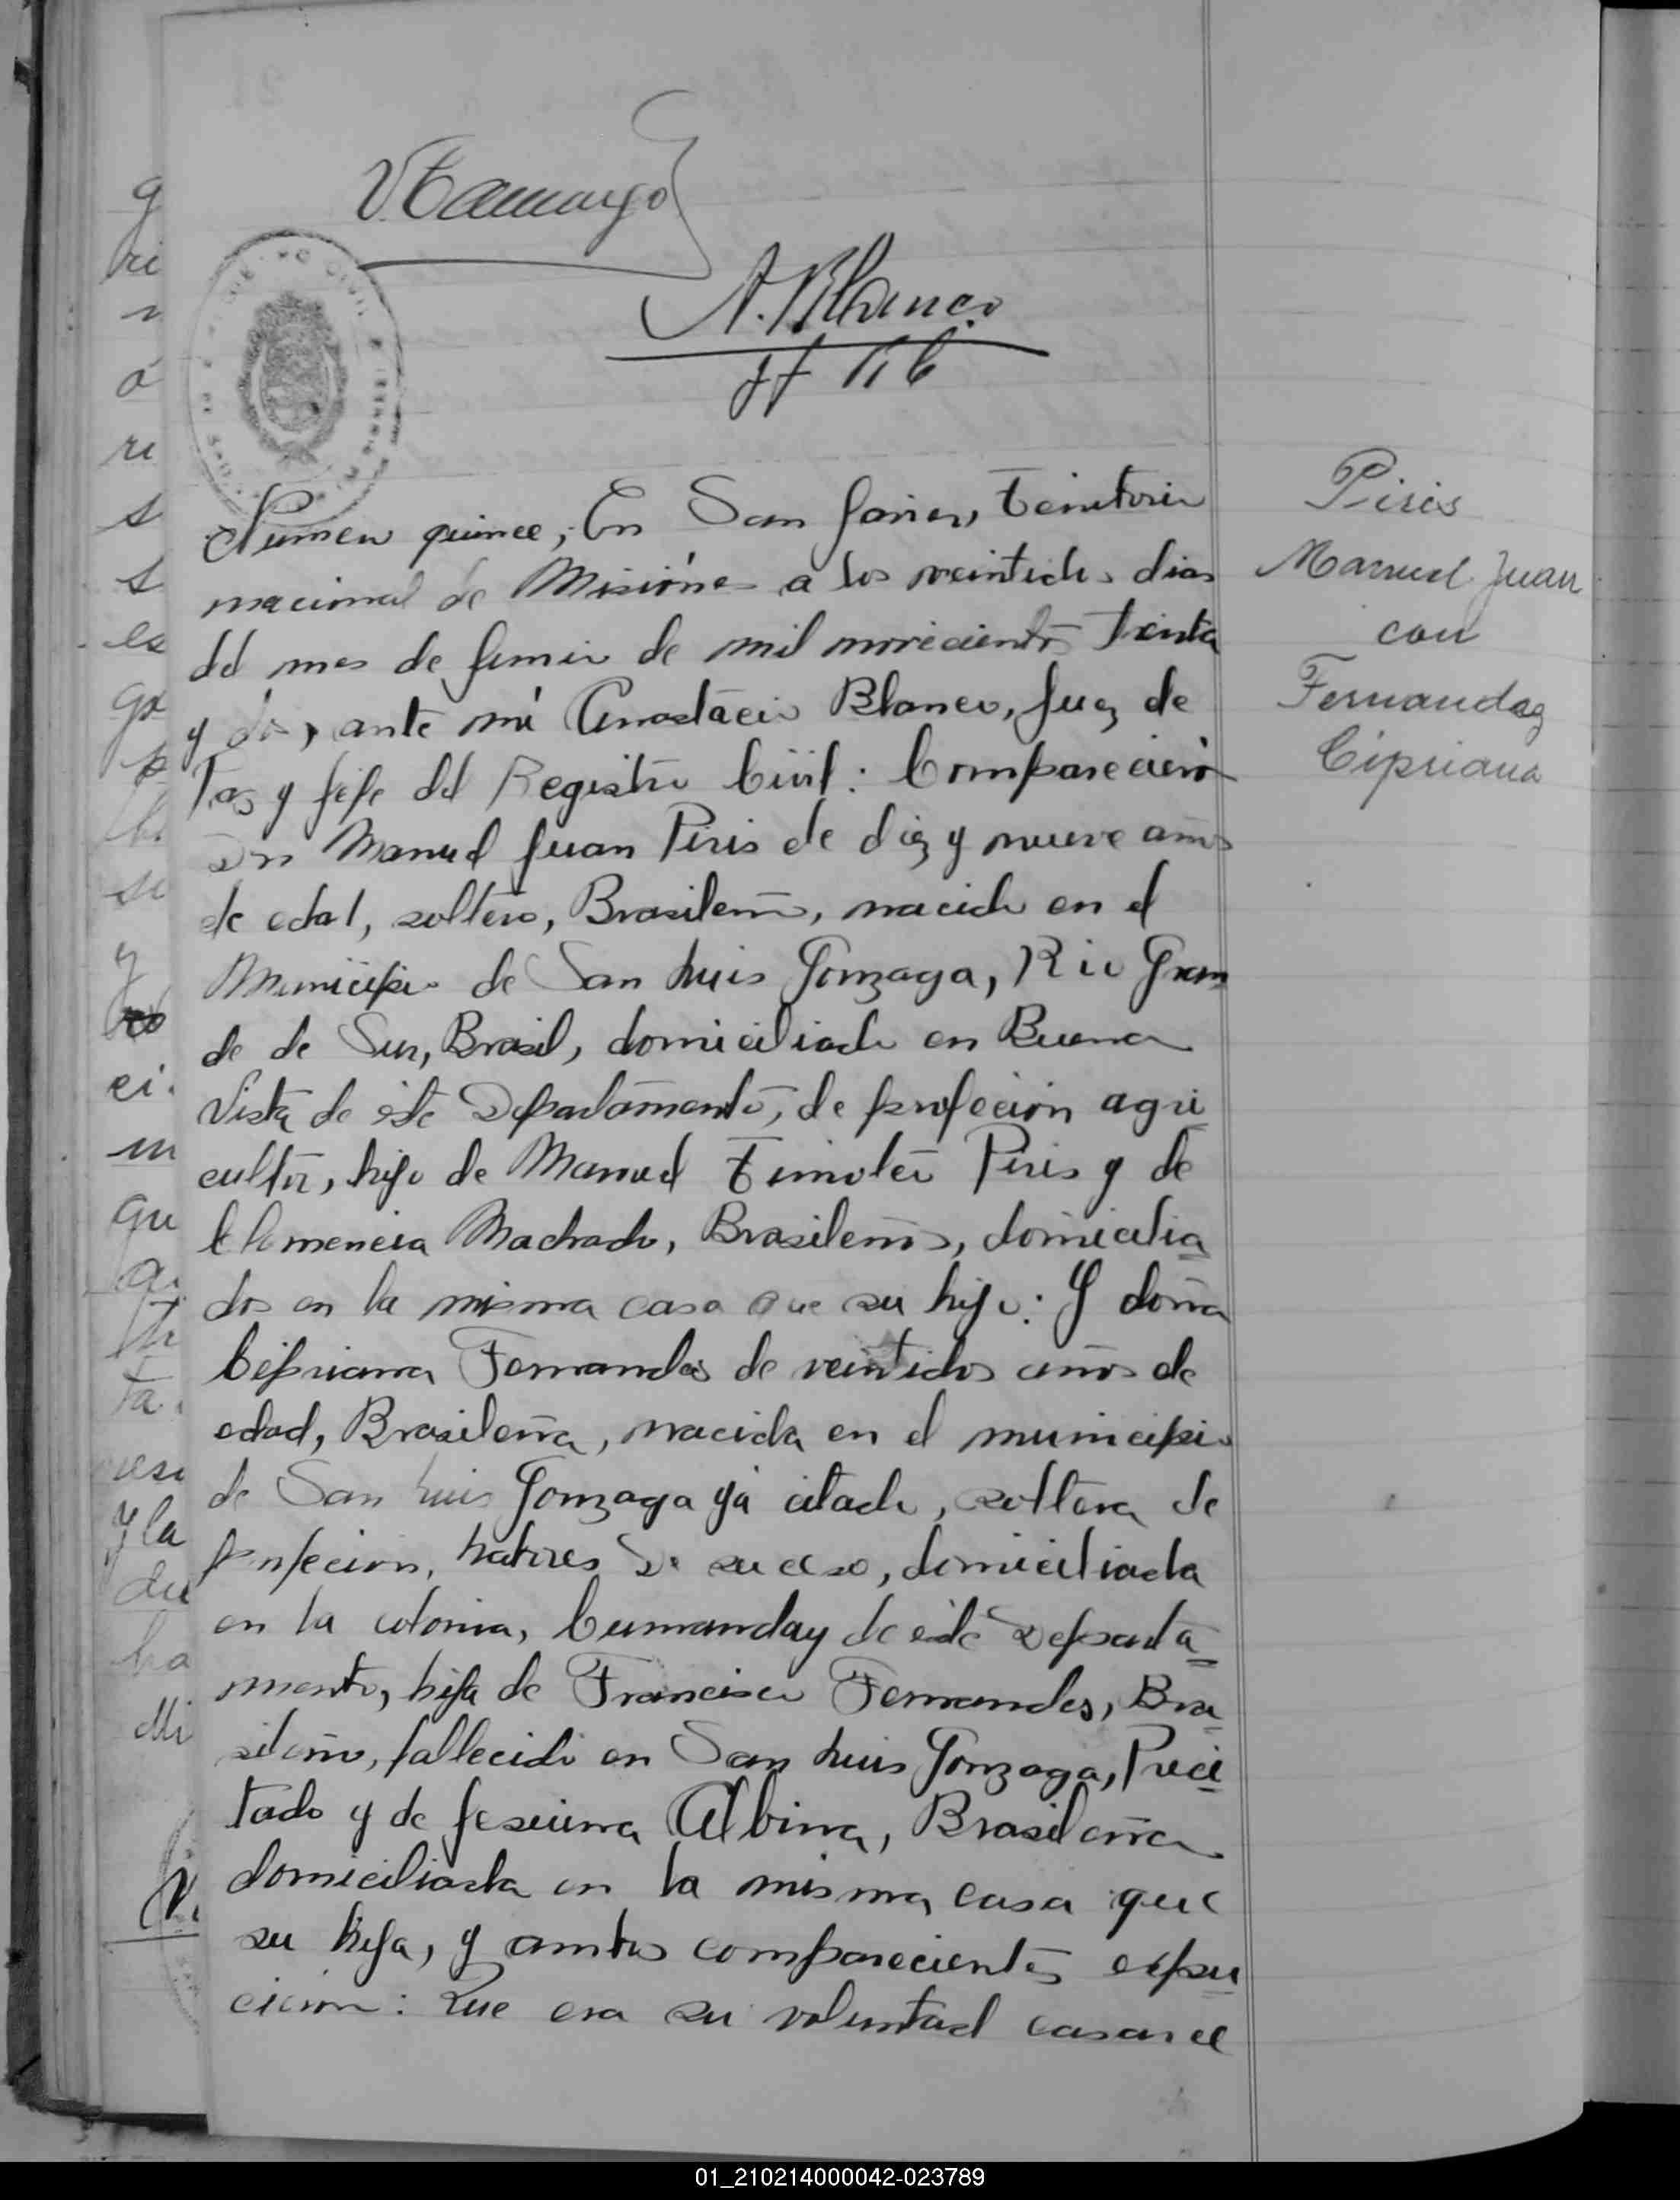 A. Blanco
Numero quince; En San Javier, Territorio
nacional de Misiones a los veintidos dias
del mes de Junio de mil novecientos treinta
y dos, ante mi Anastacio Blanco, Juez de
Paz y Jefe del Registro Civil: Comparecieron
Don Manuel Juan Piris de diez y nueve años
de edad, soltero, Brasileño, nacido en el
Municipio de San Luis Gonzaga, Rio Gran
de de Sur, Brasil, domiciliado en Buena
Vista de este Departamento, de profecion agri
cultor, hijo de Manuel Timoteo Piris y de
Clemencia Machado, Brasileños, domicilia
dos en la misma casa que su hijo: Y doña
Cipriana Fernandes de veintidos años de
edad, Brasileña, nacida en el municipio
de San Luis Gonzaga ya citado, soltera de
profecion, labores de su ceso, domiciliada
en la colonia, Cumanday de este Departa
mento, hija de Francisco Fernandes, Bra
sileño, fallecido en San Luis Gonzaga, Preci
tado y de Jesuina Albina, Brasileña
domiciliada en la misma casa que
su hija, y ambos comparecientes expu
cieron: Que era su voluntad casarce
Piris
Manuel Juan
con
Fernandez
Cipriana
01_210214000042-023789